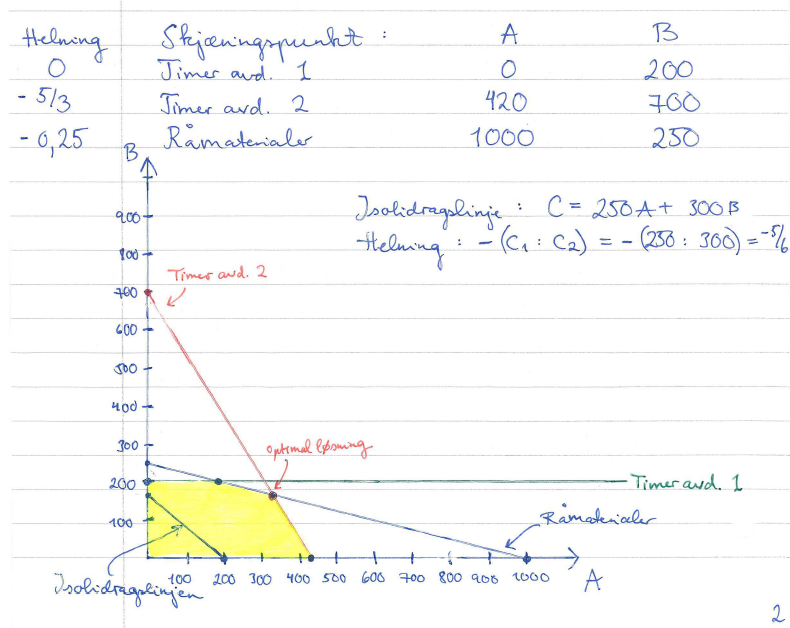 Helning Skjæningspunkt : A B
0 Timer avd. 1 0 200
- 5/3 Timer avd. 2 420 700
- 0,25 Råmaterialer 1000 250
B
Isolidragslinje : C = 250A + 300B
Helning : - (C1 : C2) = - (250 : 300) = -5/6
900
800
Timer avd. 2
700
600
500
400
300
optimal løsning
200
Timer avd. 1
100
Råmaterialer
100 200 300 400 500 600 700 800 900 1000 A
Isobidragslinjen
2